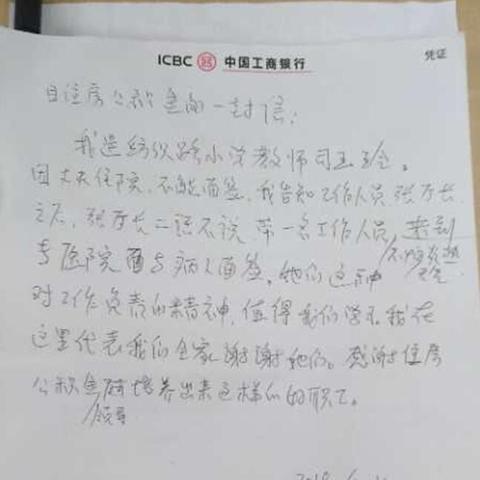 ICBC 中国工商银行
凭证
住房公积金的一封信:
我是纺织路小学教师司玉金。
因丈夫住院,不能面签,我告知工作人员张厅长
之后,张厅长二话不说带一名工作人员,来到
不怕炎热
专医院面与病人面签,她们这种
对工作负责的精神,值得我们学习,我在
这里代表我们全家谢谢她们。感谢住房
公积金领导培养出来这样的职工。